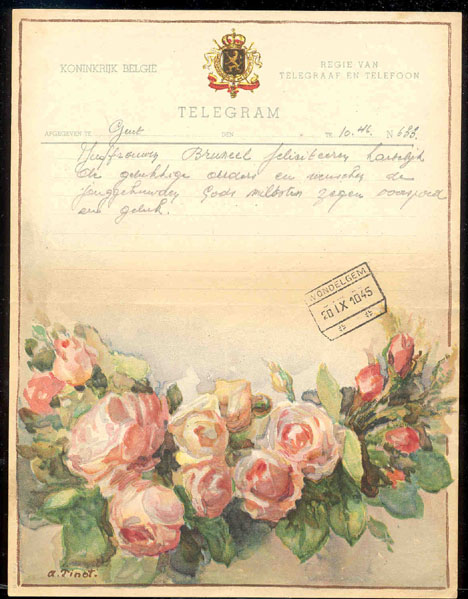 KONINKRIJK BELGIË
REGIE VAN
TELEGRAAF EN TELEFOON
TELEGRAM
AFGEGEVEN TE Gent DEN TE 10.46 N 633
Juffrouwen Bruneel feliciteeren hartelijk
de gelukkige ouders en wenschen de
jonggehuwden Gods milden zegen voorspoed
en geluk.
WONDELGEM
20 IX 1045
A. Pinot.